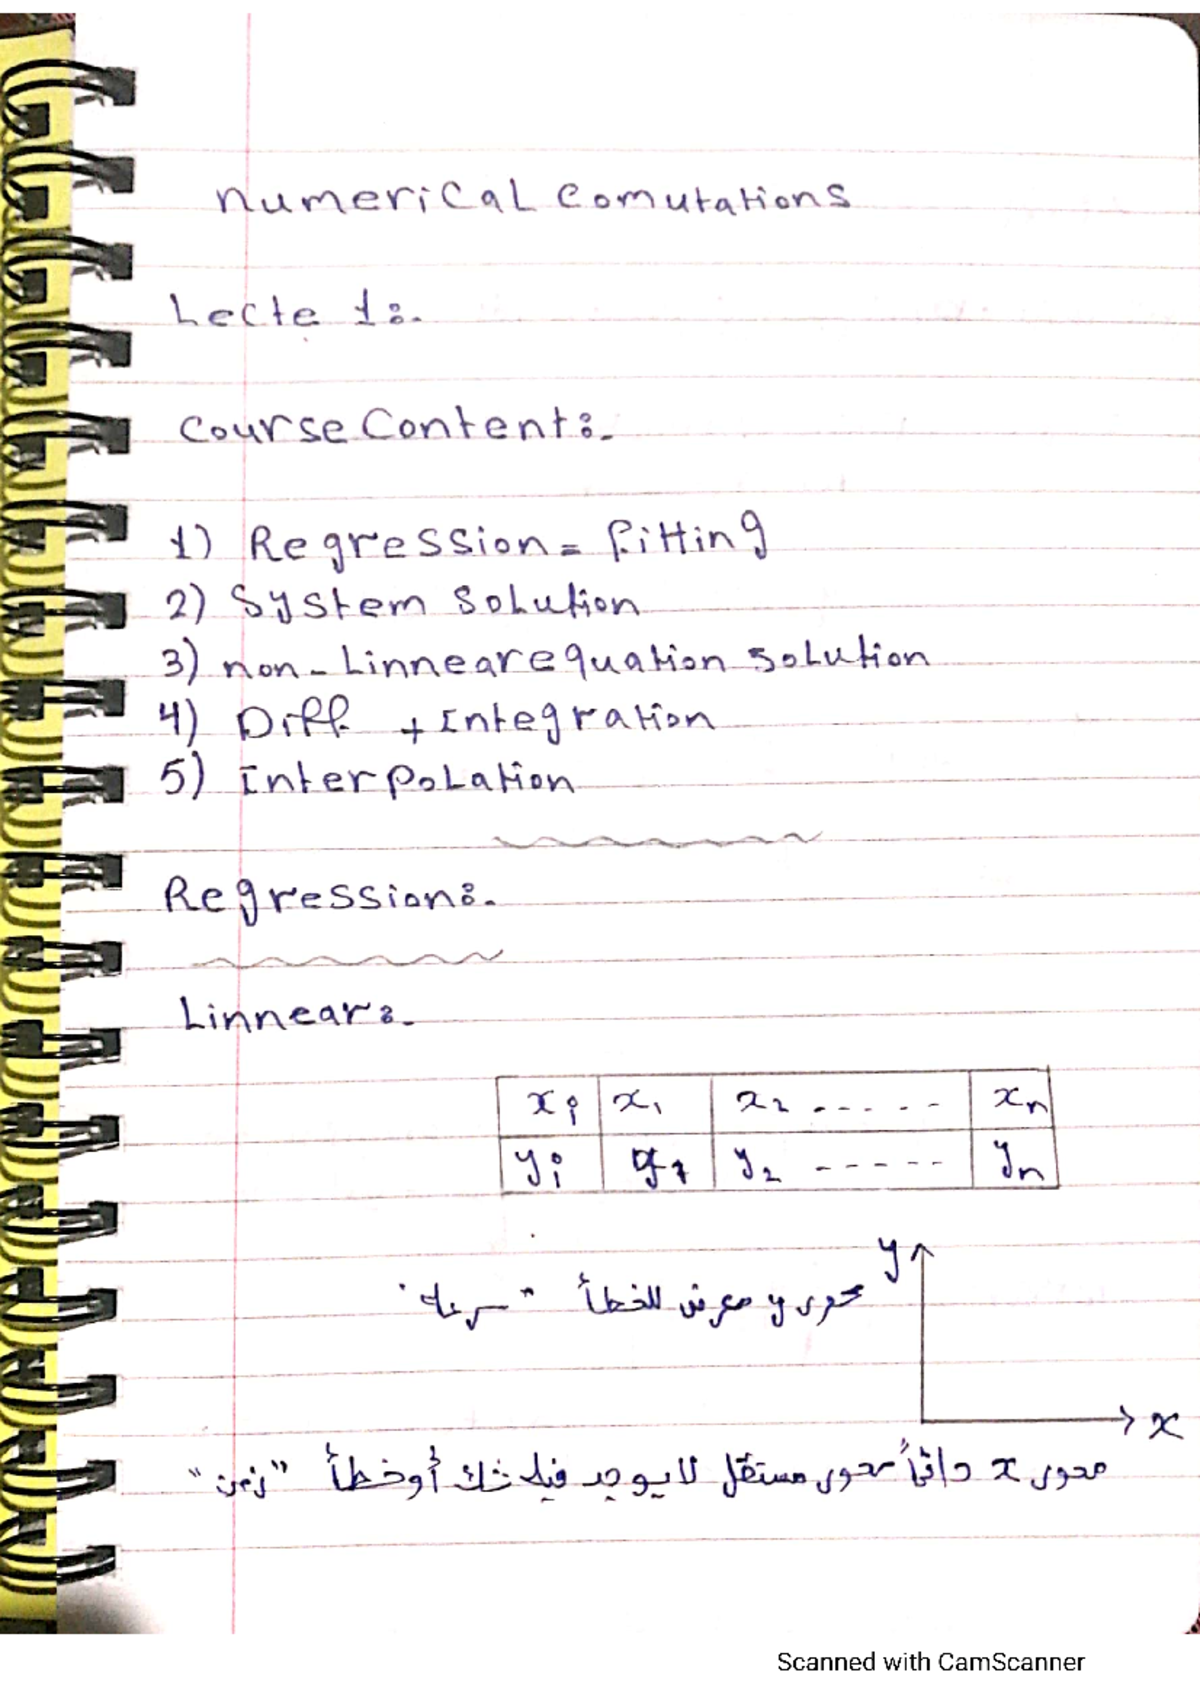 numerical Comutations
Lecte 1:.
Course Content:.
1) Regression = fitting
2) System solution
3) non-Linnear equation solution
4) Diff. + Integration
5) Interpolation
Regression:.
Linnear:.
xi x1 x2 ------ xn
yi y1 y2 ------ yn
y
محور y معرض للخطأ "سرعة"
x
محور x دائماً محور مستقل لا يوجد فيه شك أو خطأ "زمن"
Scanned with CamScanner